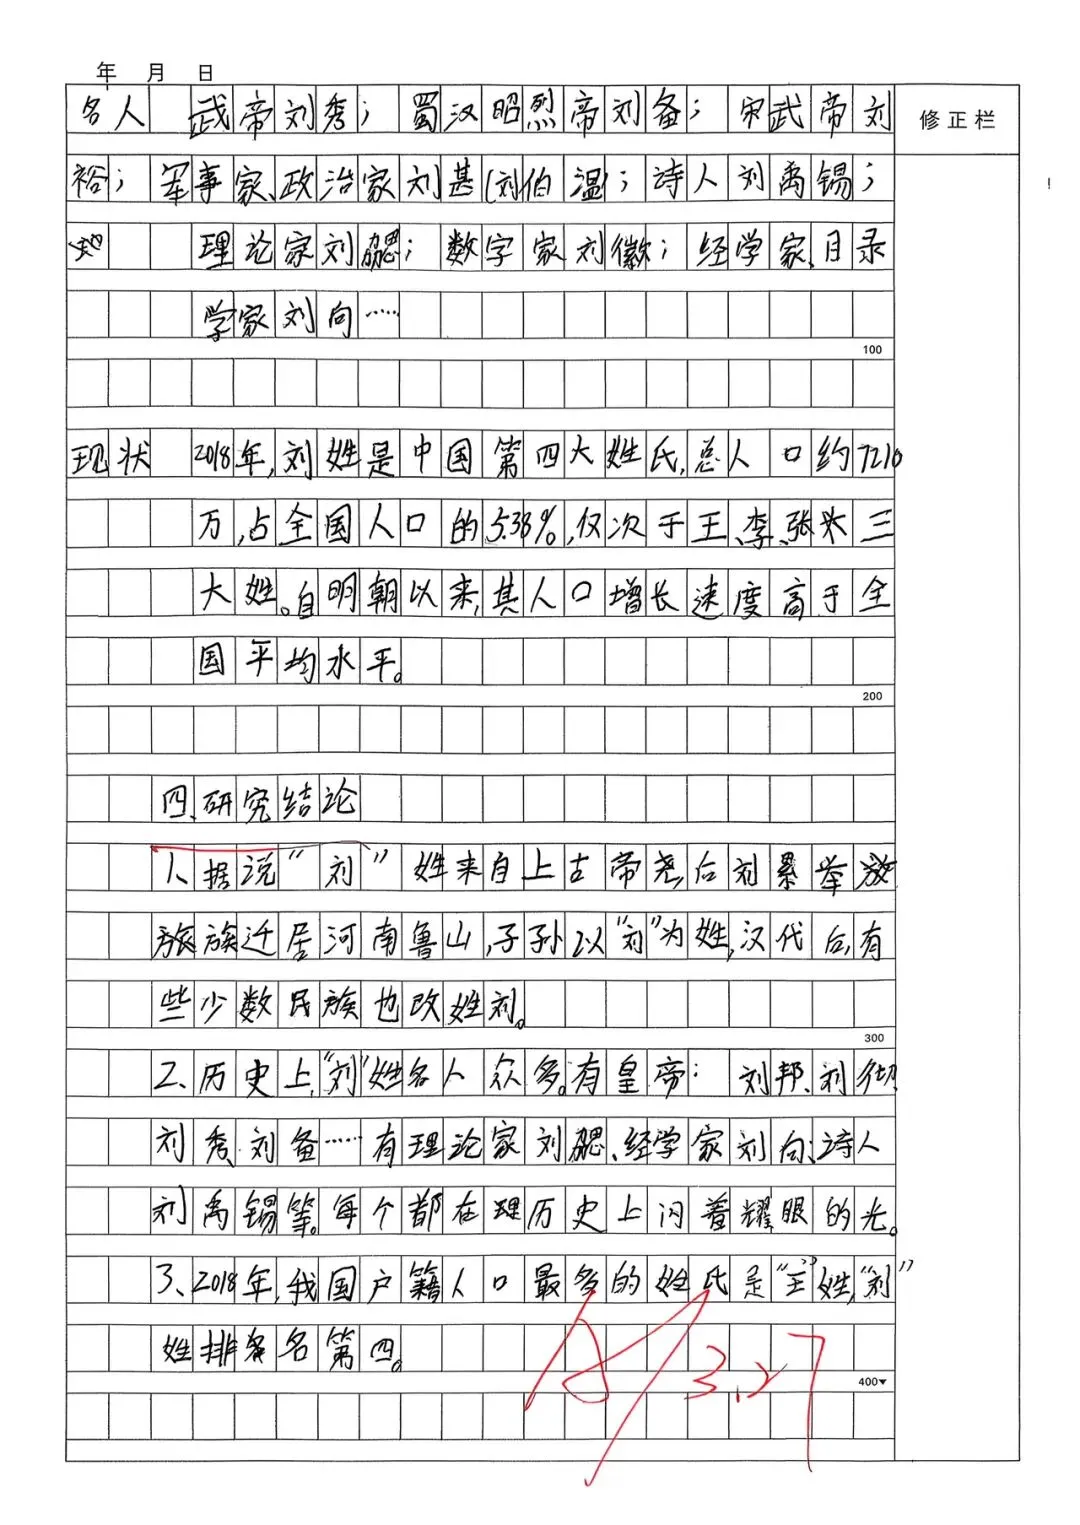 年 月 日
修正栏
名人 武帝刘秀；蜀汉昭烈帝刘备；宋武帝刘
裕；军事家、政治家刘甚(刘伯温)；诗人刘禹锡；
理论家刘勰；数字家刘徽；经学家、目录
学家刘向……
100
现状 2018年,刘姓是中国第四大姓氏,总人口约7210
万,占全国人口的5.38%,仅次于王、李、张三
大姓。自明朝以来,其人口增长速度高于全
国平均水平。
200
四、研究结论
1、据说“刘”姓来自上古帝尧,后刘累举
族迁居河南鲁山,子孙以“刘”为姓,汉代后,有
些少数民族也改姓刘。
300
2、历史上,“刘”姓名人众多。有皇帝：刘邦、刘彻
刘秀、刘备……有理论家刘勰、经学家刘向、诗人
刘禹锡等。每个都在历史上闪着耀眼的光。
3、2018年,我国户籍人口最多的姓氏是“王”姓,“刘”
姓排名第四。
400
A 3.27